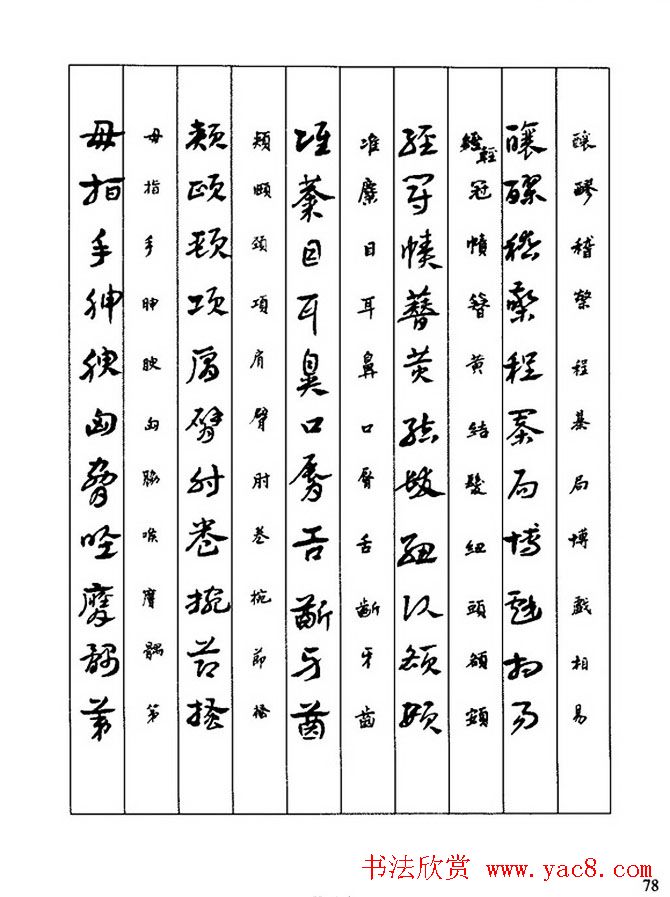 釀醪稽檠程棊局博戲相易
釀醪稽檠程棊局博戲相易
經輕冠幘簪黄結髮紐頭額頞
經冠幘簪黄結髮紐頭額頞
准麋目耳鼻口脣舌齗牙齒
准麋目耳鼻口脣舌齗牙齒
頰頤頸項肩臂肘卷捥節搔
頰頤頸項肩臂肘卷捥節搔
母指手胂腴匈脇喉膺髃第
母指手胂腴匈脇喉膺髃第
书法欣赏 www.yac8.com
78